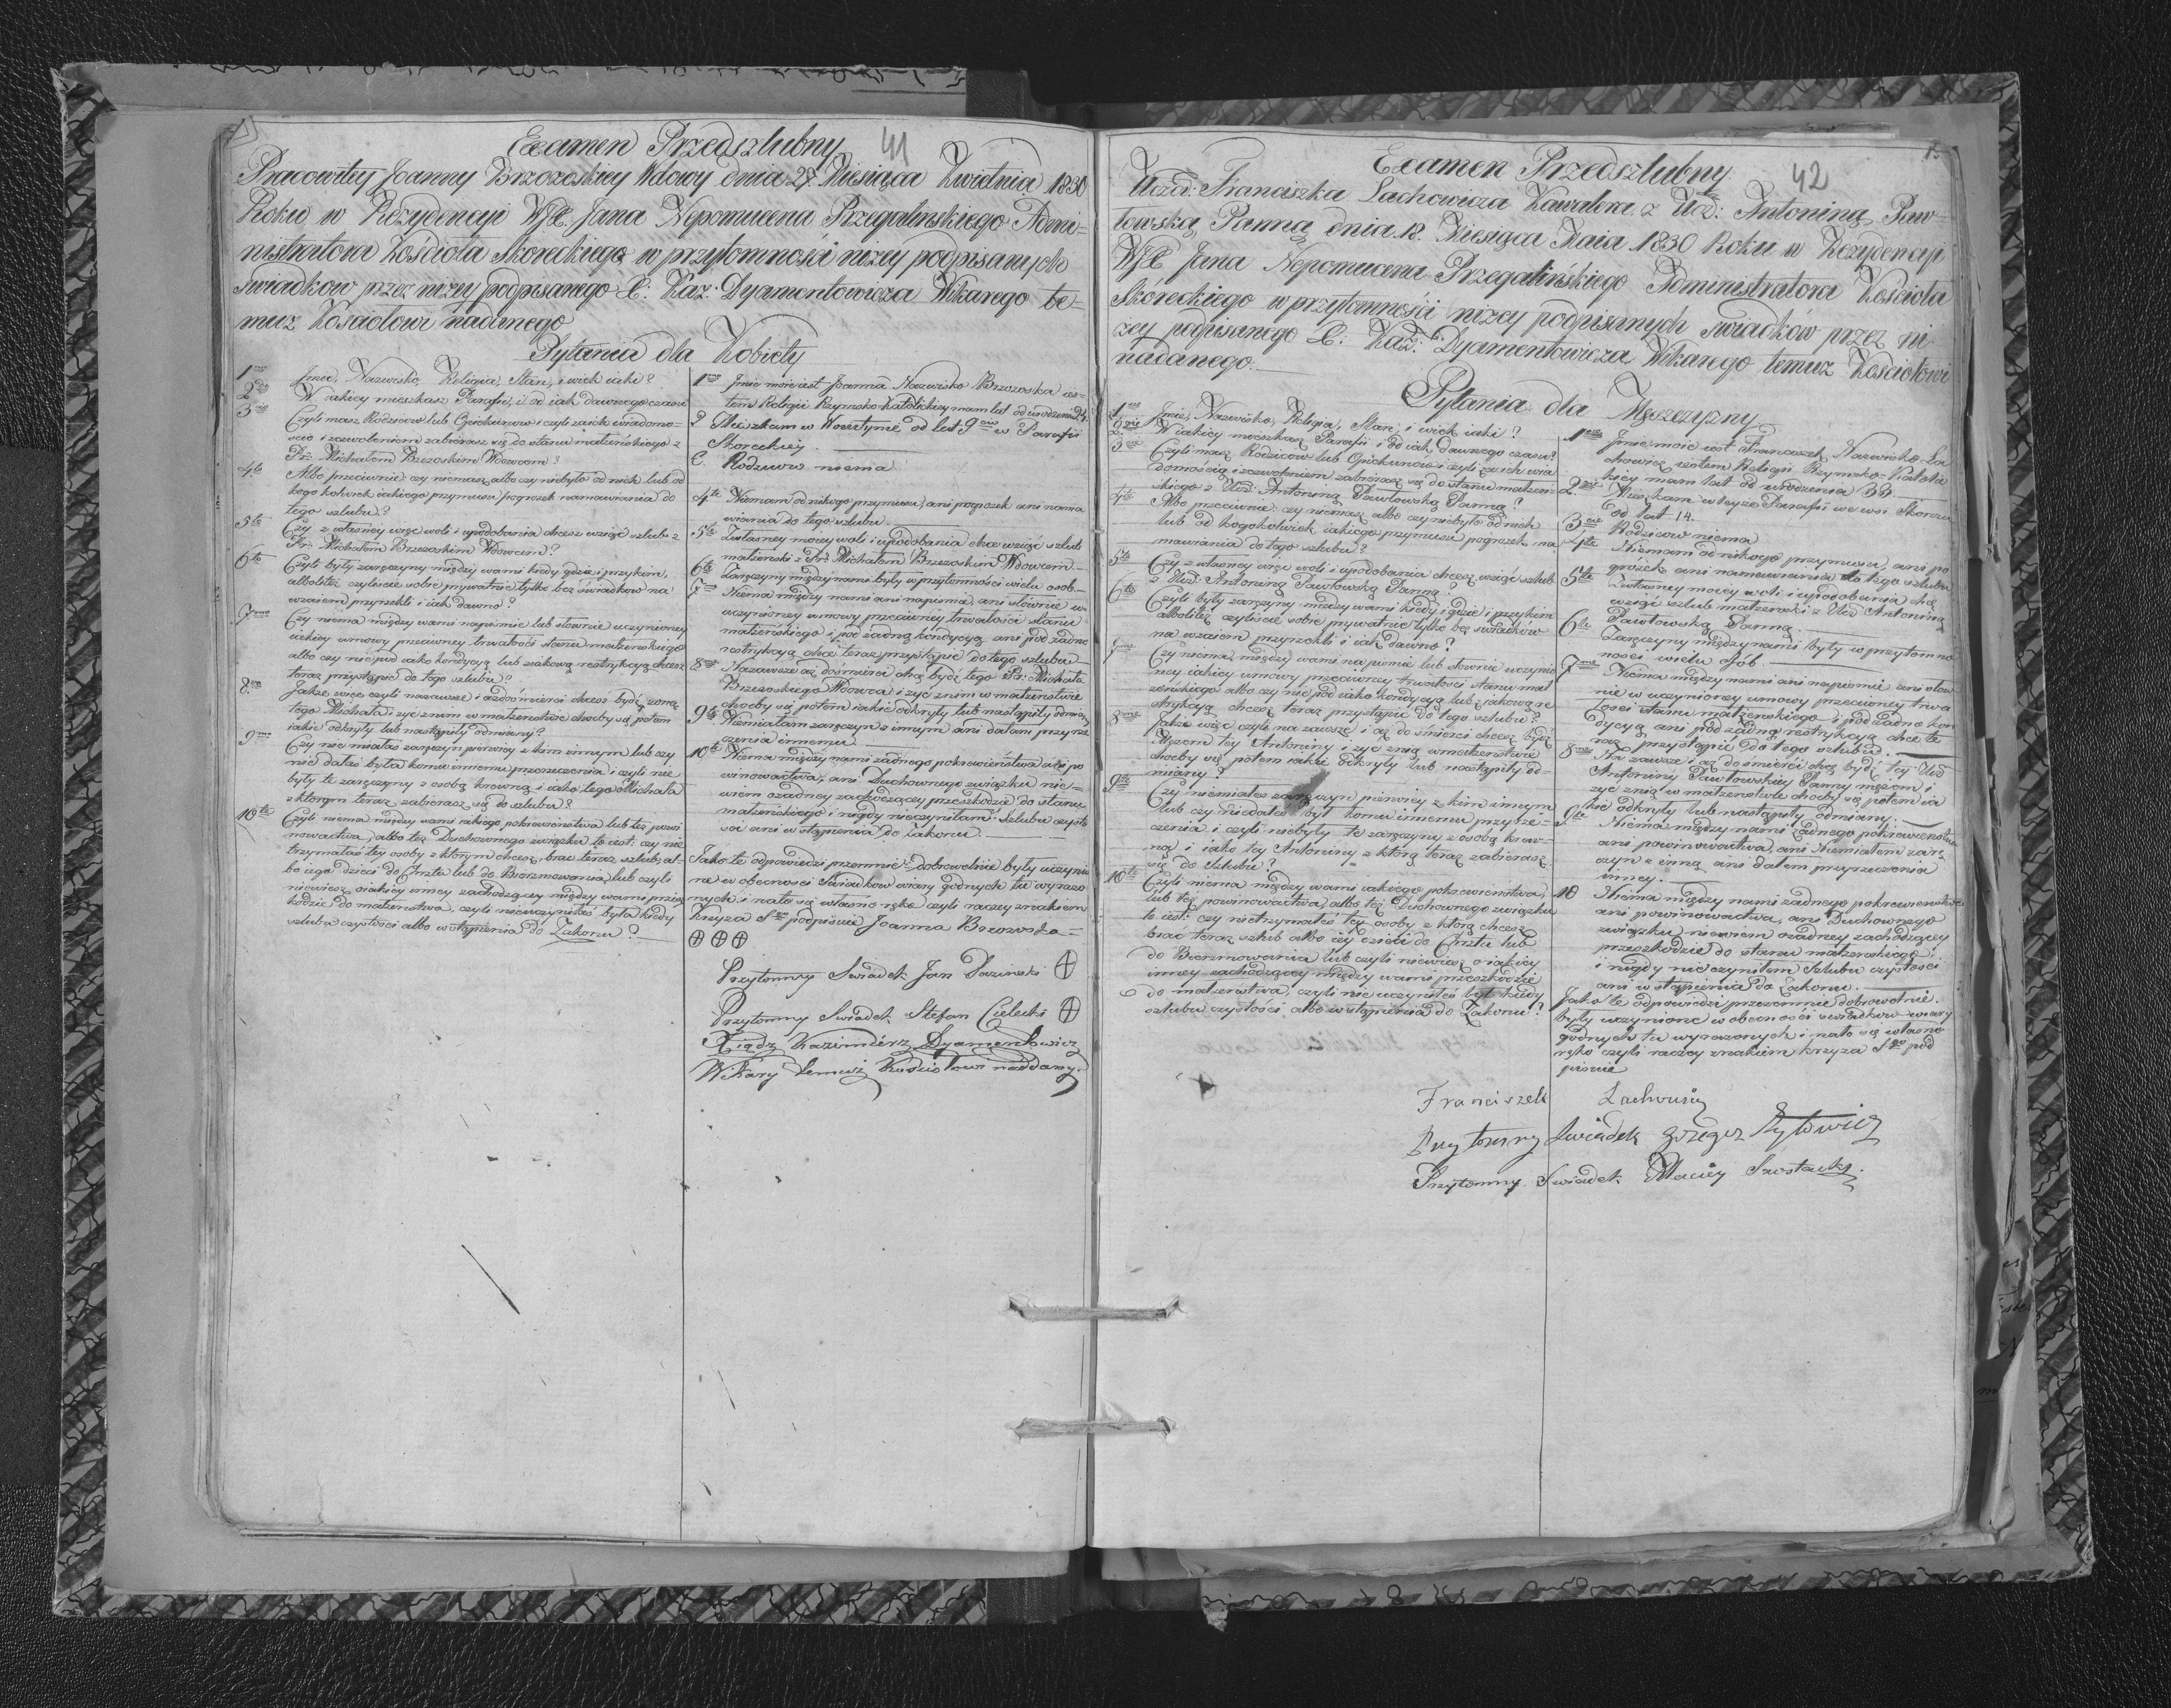 Examen Przedszlubny 41
Pracowitey Joanny Brzozoskiey Wdowy dnia 27 Miesiąca Kwietnia 1830
Roku w Rezydencyi WJX. Jana Nepomucena Przegalinskiego Admi-
nistratora Kościoła Skoreckiego w przytomności niżey podpisanych
świadkow przez niżey podpisanego X: Kaz: Dyamentowicza Wikarego te-
muz Kościołowi nadanego
Pytania dla Kobiety
1mo Jmie, Nazwisko, Religia, Stan, i wiek iaki?
2do W iakiey mieszkasz Parafii, i od iak dawnego czasu
3cio Czyli masz Rodzicow lub Opiekunow i czyli za ich wiadomo-
scią i zezwoleniem zabierasz się do stanu małżenskiego z
Pr: Michałem Brzozoskim Wdowcem?
4te Albo przeciwnie: czy niemasz albo czy niebyło od nich lub od
kogo kolwiek iakiego przymusu pogrozek namawiania do
tego szlubu?
5te Czy z własney więc woli i upodobania chcesz wziąść szlub z
Pr: Michałem Brzozoskim Wdowcem?
6te Czyli były zaręczyny między wami kiedy gdzie i przykim,
albo też czyliście sobie prywatnie tylko bez świadkow na
wzaiem przyrzekli i iak dawno?
7mo Czy niema między wami napismie lub słownie uczynioney
iakiey umowy przeciwney trwałości stanu małżenskiego
albo czy nie pod iako kondycyą lub iakową restrykcyą chcesz
teraz przystąpić do tego szlubu?
8vo Jakże więc czyli nazawsze i aż do śmierci chcesz być żoną
tego Michała i żyć z nim w małżenstwie choćby się potem
iakie odkryły lub nastąpiły odmiany?
9no Czy nie miałas zaręczyn pierwiey z kim innym lub czy
nie dałas była komu innemu przyrzeczenia i czyli nie
były te zaręczyny z osobą krewną i iako tego Michała
z którym teraz zabierasz się do szlubu?
10te Czyli niema między wami iakiego pokrewienstwa lub też powi
nowactwa albo też Duchownego związku to iest: czy nie
trzymałaś tey osoby z ktorym chcesz brac teraz szlub, al-
bo iego dzieci do Chrztu lub do Bierzmowania, lub czyli
niewiesz o iakiey inney zachodzącey między wami przesz
kodzie do małżenstwa, czyli nieuczyniłas była kiedy
szlubu czystości albo wstąpienia do Zakonu?
1mo Jmie moie iest Joanna Nazwisko Brzozoska ies-
tem Religii Rzymsko-Katolickiey mam lat od urodzenia 24.
2 Mieszkam w od lat 9ciu w Parafii
Skoreckiey.
3 Rodzicow niema
4te Niemam od nikogo przymusu, ani pogrozek ani nama
wiania do tego szlubu.
5te Zwłasney mocey woli i upodobania chce wziąść szlub
małżenski z Pr: Michałem Brzozoskim Wdowcem.
6te Zaręczyny między nami były w przytomności wielu osob.
7mo Niema między nami ani napismie, ani słownie u-
czynioney umowy przeciwney trwałości stanu
małżeńskiego i pod żadną kondycyą ani pod żadną
restrykcyą chce teraz przystąpić do tego szlubu
8vo Nazawsze aż do śmierci chcę być tego Pr: Michała
Brzozoskiego Wdowca i żyć z nim w małżenstwie
choćby się potem iakie odkryły lub nastąpiły odmiany
9te Niemiałam zaręczyn z innym ani dałam przyrze
czenia innemu.
10te Niema między nami żadnego pokrewieństwa ani po
winowactwa, ani Duchownego związku nie-
wiem o żadney zachodzącey przeszkodzie do stanu
małżenskiego i nigdy nieczyniłam szlubu czysto
sci ani wstąpienia do Zakonu.
Jako te odpowiedzi przezmnie dobrowolnie były uczynio
ne w obecnosci Swiadkow wiary godnych tu wyrażo
nych i nato się własno ręko czyli raczey znakiem
Krzyża Sgo podpisuie Joanna Brzozoska
Przytomny Swiadek Jan
Przytomny Swiadek Stefan Cielecki
Xiądz Kazimierz Dyamentowicz
Wikary temuż Kościołowi naddany.
Examen Przedszlubny 42
Uczci: Franciszka Lachowicza Kawalera z Ucz: Antoniną Paw-
łowską Panną dnia 18. Miesiąca Maia 1830 Roku w Rezydencyi
WJX Jana Nepomucena Przegalińskiego Administratora Kościoła
Skóreckiego w przytomności niżey podpisanych świadków przez ni-
żey podpisanego X: Kaz: Dyamentowicza Wikarego temuz Kościołowi
nadanego.
Pytania dla Męszczyzny
1mo Jmie, Nazwisko, Religia, Stan, i wiek iaki?
2gie W iakiey mieszkasz Parafii i od iak dawnego czasu?
3cie Czyli masz Rodzicow lub Opiekunów i czyli za ich wia
domością i zezwoleniem zabierasz się do stanu małżen-
skiego z Ucz: Antoniną Pawłowską Panną?
4te Albo przeciwnie: czy niemasz albo czy niebyło od nich
lub od kogokolwiek iakiego przymusu pogrozek na
mawiania do tego szlubu?
5te Czy z własney więc woli i upodobania chcesz wziąść szlub
z Ucz: Antoniną Pawłowską Panną?
6te Czyli były zaręczyny między wami kiedy i gdzie i przykim
albo też czyliście sobie prywatnie tylko bez świadków
na wzaiem przyrzekli i iak dawno?
7me Czy niema między wami na pismie lub słownie uczynio
ney iakiey umowy przeciwney trwałości stanu mał
żenskiego albo czy nie pod iako kondycyą lub iakową re
strykcyą chcesz teraz przystąpić do tego szlubu?
8me Jakże więc czyli na zawsze i aż do śmierci chcesz bydź
Mężem tey Antoniny i żyć z nią w małżenstwie
choćby się potem iakie odkryły lub nastąpiły od-
miany?
9te Czy niemiałeś zaręczyn pierwiey z kim innym
lub czy niedałeś był komu innemu przyrze-
czenia i czyli niebyły te zaręczyny z osobą krew-
ną i iako tey Antoniny z którą teraz zabierasz
się do szlubu?
10te Czyli niema między wami iakiego pokrewieństwa,
lub też powinowactwa, albo też Duchownego związku
to iest: czy nietrzymałeś tey osoby z którą chcesz
brać teraz szlub albo iey dzieci do Chrztu lub
do Bierzmowania lub czyli niewiesz o iakiey
inney zachodzącey między wami przeszkodzie
do małżenstwa, czyli nie uczyniłeś był kiedy
szlubu czystości albo wstąpienia do Zakonu?
1mo Jmie moie iest Franciszek Nazwisko La
chowicz iestem Religii Rzymsko-Katolic
kiey mam lat od urodzenia 33.
2gie Mieszkam w teyże Parafii we wsi
od lat 14.
3cie Rodzicow niema
4te Niemam od nikogo przymusu, ani po
gróżek ani namawiania do tego szlubu
5te Zwłasney mocey woli i upodobania chcę
wziąść szlub małżenski z Ucz Antoniną
Pawłowską Panną.
6te Zaręczyny między nami były w przytom
ności wielu osób.
7me Niema między nami ani napismie ani słow
nie uczynioney umowy przeciwney trwa
łości stanu małżenskiego i pod żadno kon
dycyą ani pod żadną restrykcyą chce te
raz przystąpić do tego szlubu.
8me Na zawsze i aż do śmierci chcę być tey Ucz
Antoniny Pawłowskiey Panny mężem i
żyć z nią w małżenstwie choćby się potem ia
kie odkryły lub nastąpiły odmiany.
9te Niema między nami żadnego pokrewenstwa
ani powinowactwa, ani Niemiałem zarę
czyn z inną ani dałem przyrzeczenia
inney.
10 Niema między nami żadnego pokrewienstwa
ani powinowactwa, ani Duchownego
związku niewiem o żadney zachodzącey
przeszkodzie do stanu małżenskiego
i nigdy nie czyniłem szlubu czystości
ani wstąpienia do Zakonu.
Jako te odpowiedzi przezemnie dobrowolnie
były uczynione w obecności świadków wiary
godnych tu wyrażonych i nato się własno
ręko czyli raczey znakiem krzyża Sgo pod
pisuie
Franciszek Lachowicz
Przytomny Swiadek Grzegorz
Przytomny Swiadek Maciey